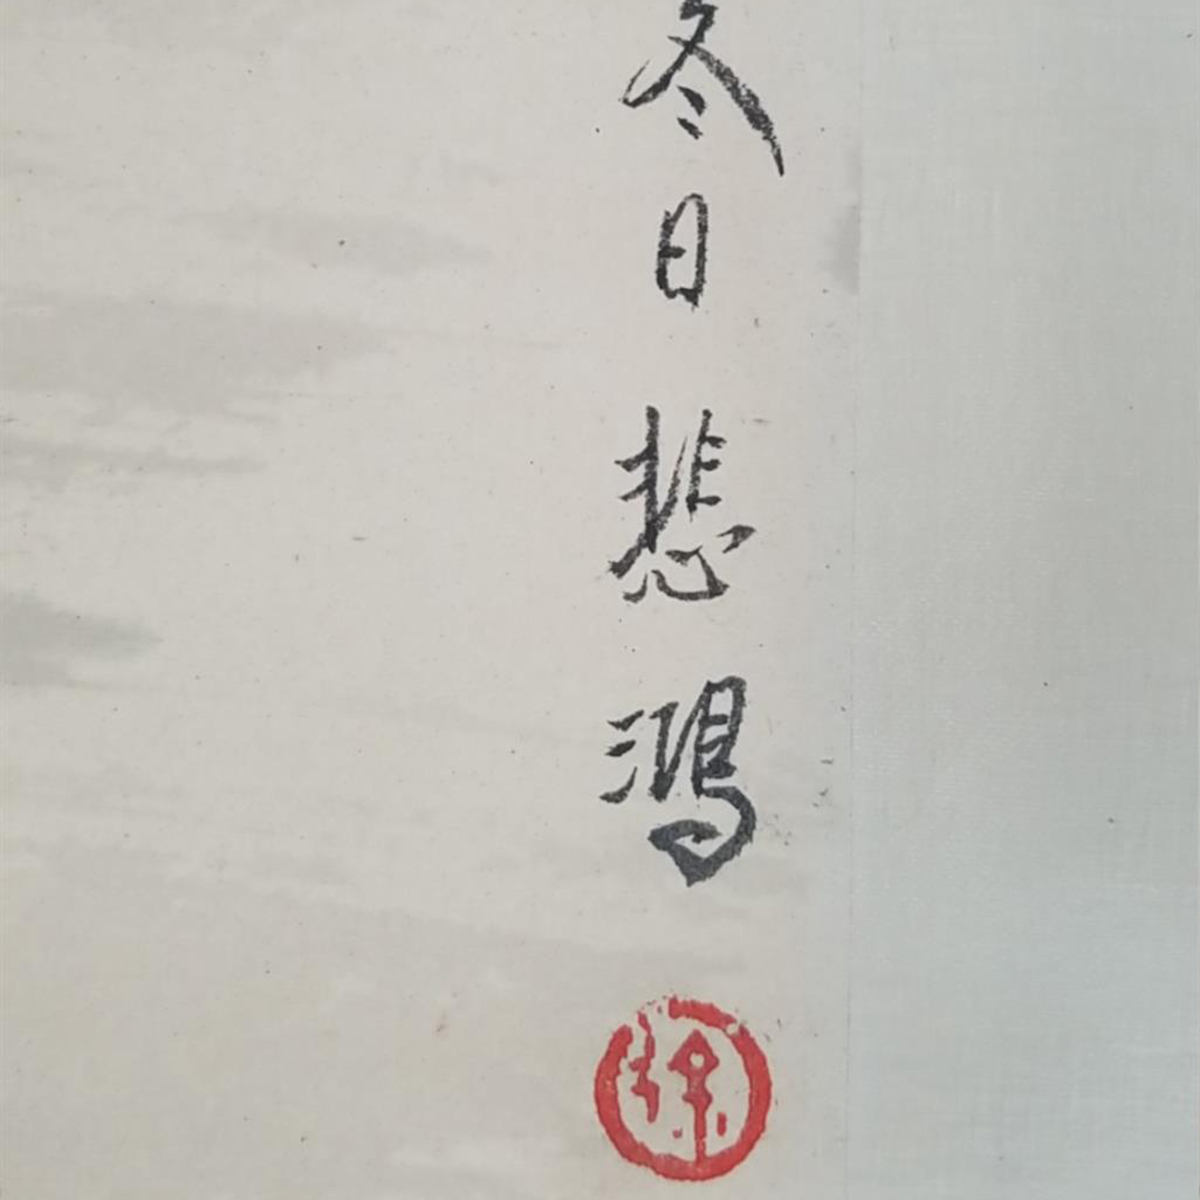 冬日悲鴻
徐